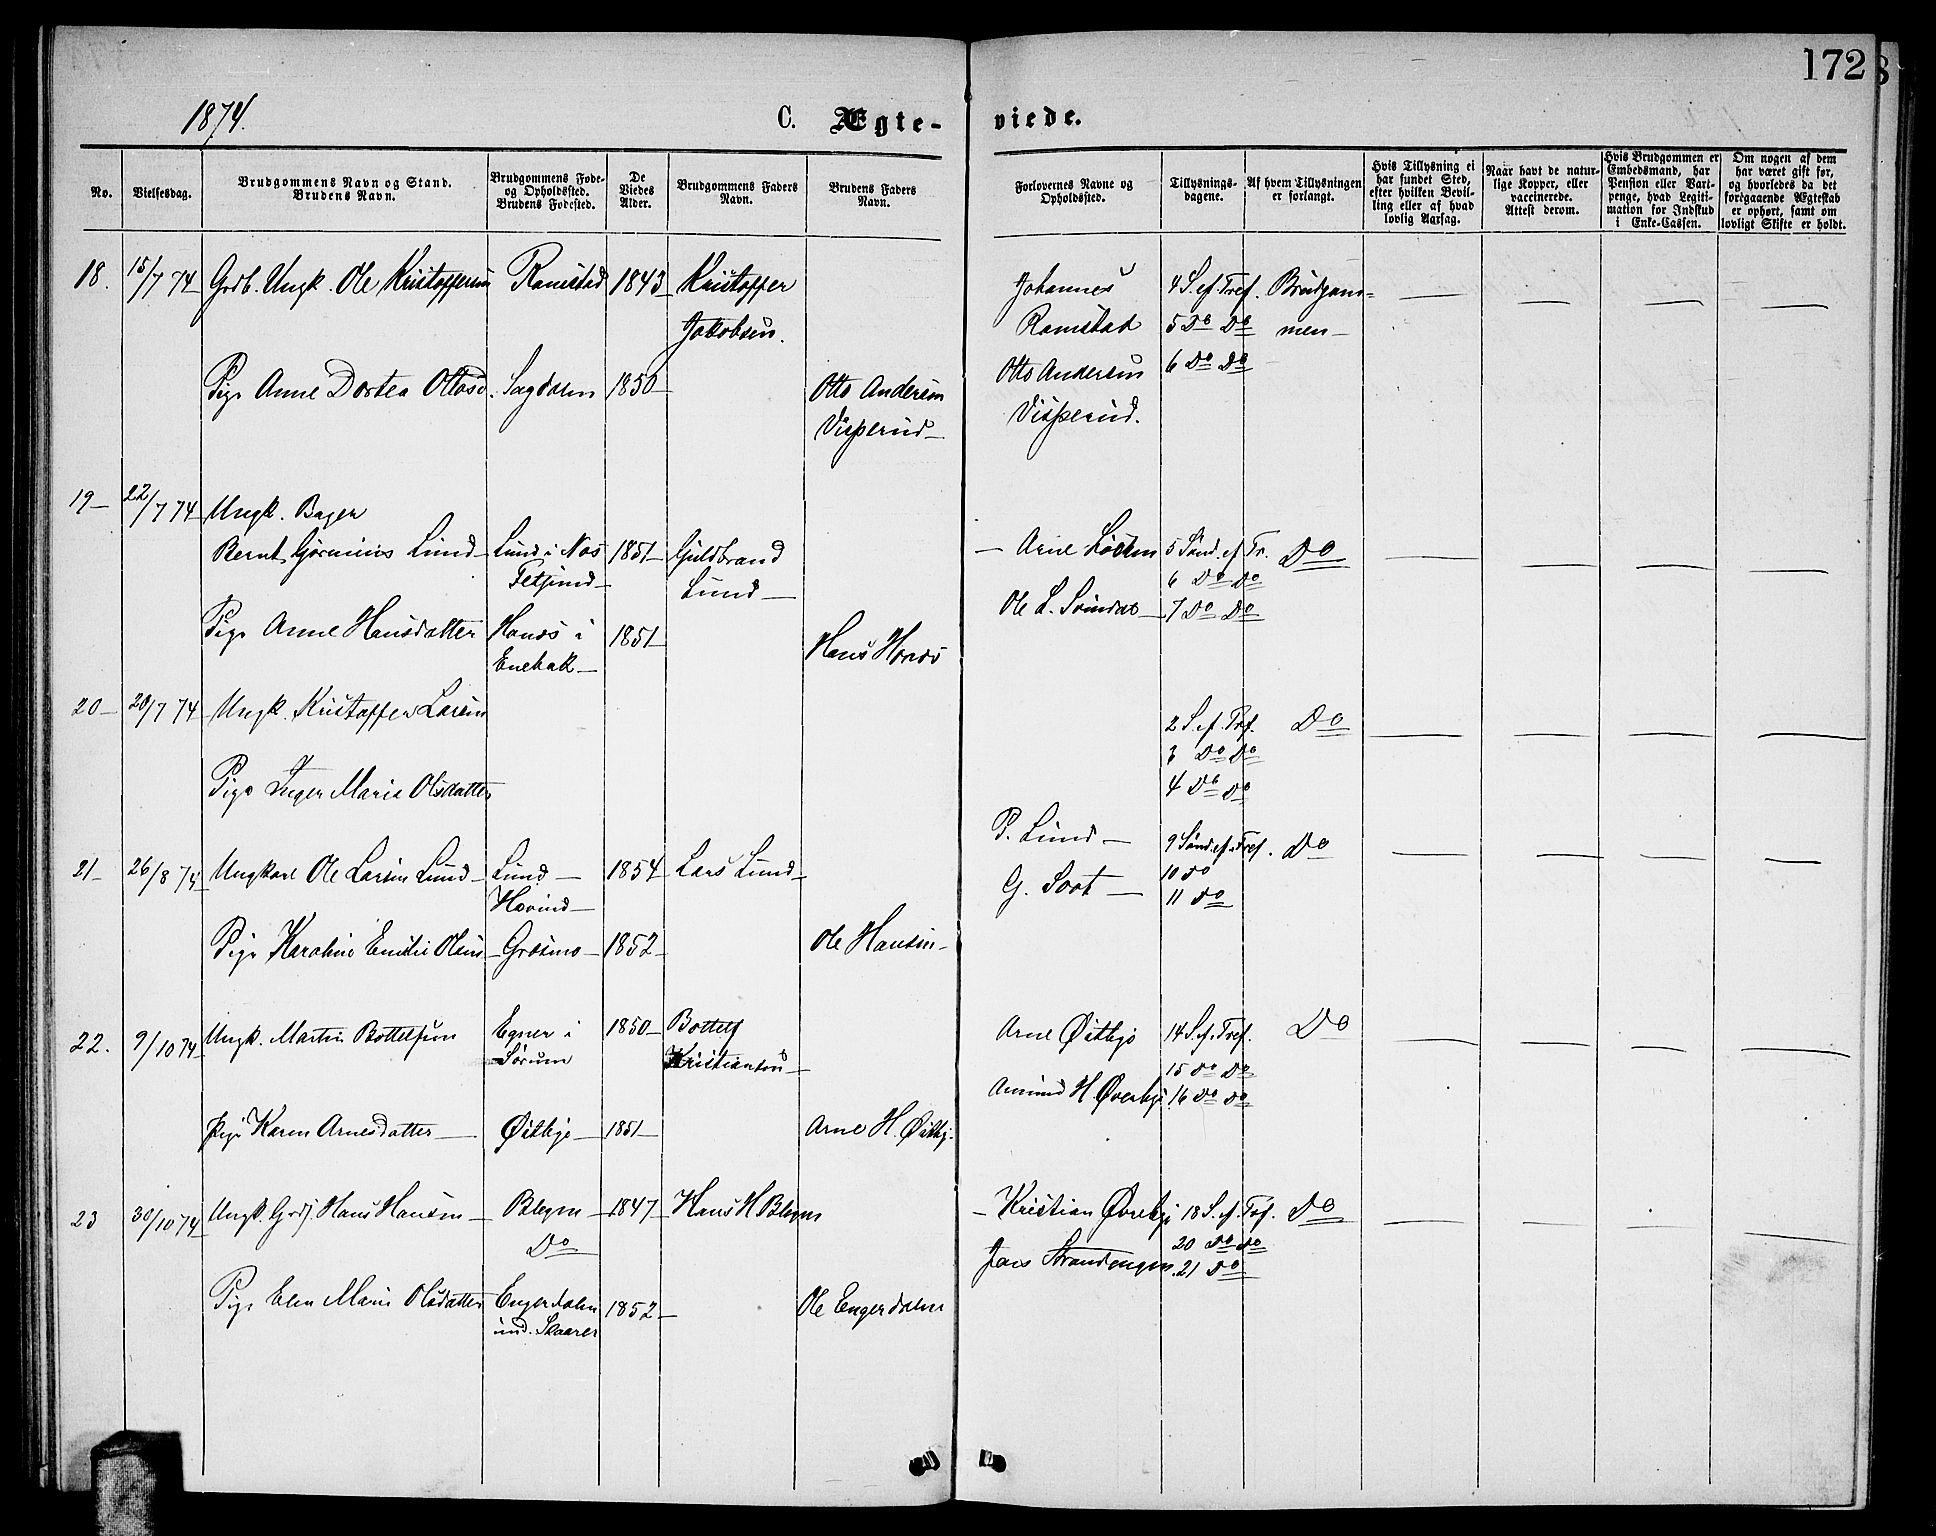 172
1874.
C. Ægte-viede.
No.
Vielsesdag.
Brudgommens Navn og Stand.
Brudens Navn.
Brudgommens Føde-
og Opholdssted.
Brudens Fødested.
De
Viedes
Alder.
Brudgommens Faders
Navn.
Brudens Faders
Navn.
Forlovernes Navne og
Opholdssted.
Tillysnings-
dagene.
Af hvem Tillysningen
er forlangt.
Hvis Tillysning ei
har fundet Sted,
efter hvilken Bevil-
ling eller af hvad
lovlig Aarsag.
Naar havt de natur-
lige Kopper, eller
vaccinerede.
Attest derom.
Hvis Brudgommen er
Embedsmand, har
Pension eller Vart-
penge, hvad Legiti-
mation for Indskud
i Enke-Cassen.
Om nogen af dem
har været gift før,
og hvorledes da det
foregaaende Ægteskab
er ophørt, samt om
lovligt Skifte er holdt.
18. 15/7 74 Grdb. Ungk. Ole Kristoffersen Ramstad 1843 Kristoffer Johannes 4 S. ef. Tref. Brudgom-
Jakobsen. Ramstad 5 Do Do men
Otto Andersen 6 Do Do
Pige Anne Dortea Ottosd. Sagdalen 1850 Otto Andersen Visperud.
Visperud
19 22/7 74 Ungk. Bager
Bernt Lund Lund i Nos 1851 Guldbrand Arne 5 Sønd. ef. Tr. Do
Fetsund Lund 6 Do Do
Ole L. 7 Do Do
Pige Anne Hansdatter i 1851 Hans
Enebak
20 20/7 74 Ungk. Kristoffer Larsen 2 S. ef. Tref. Do
3 Do Do
Pige Inger Marie Olsdatter 4 Do Do
21 26/8 74 Ungkarl Ole Larsen Lund Lund 1854 Lars Lund P. Lund 9 Sønd. ef. Tref. Do
Hovind G. Soot 10 Do
11 Do
Pige Karoline Emilie Olsen Gråsmo 1852 Ole Hansen
22. 9/10 74 Ungk. Martin Bottelfsen Egner i 1850 Bottelf Arne Østbye 14 S. ef. Tref. Do
Sørum Kristiansen 15 Do Do
Amund H. Øverbye 16 Do Do
Pige Karen Arnesdatter Østbye 1851 Arne H. Østby.
23 30/10 74 Ungk. Grdj. Hans Hansen Bleyen 1847 Hans H Bleyen Kristian Øvrebye 18 S. ef. Tref. Do
Do 20 Do Do
Strandengen 21 Do
Pige Elen Marie Olsdatter Engerdalen 1852 Ole Engerdalen
und. Skaarer